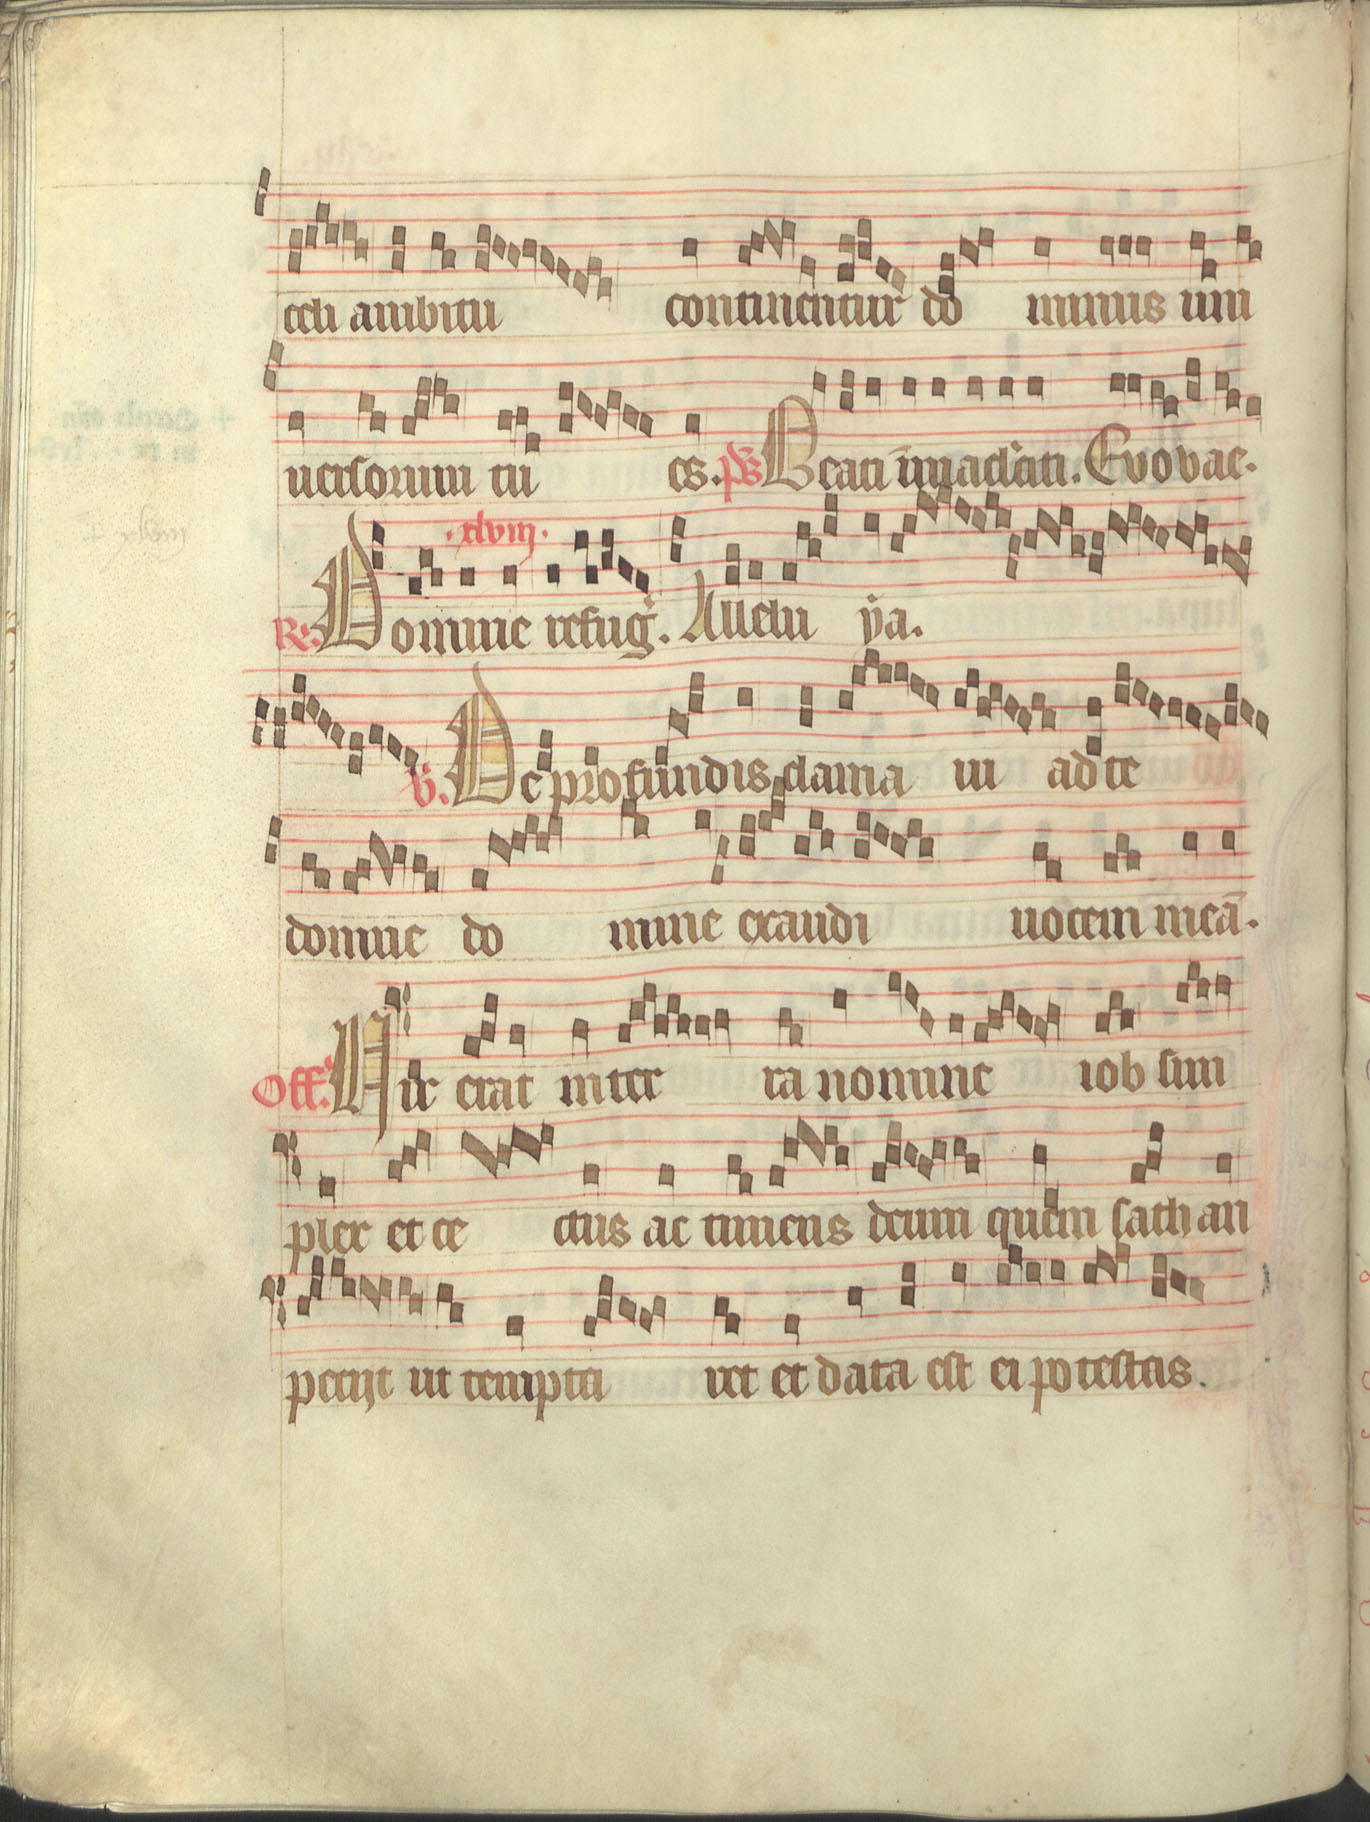 celi ambitu continentur do minus uni
uersorum tu es. ps Beati īmaculati. Evovae.
.xlviij.
R. Domine refug. Allelu ya.
V. De profundis clama ui ad te
domine do mine exaudi uocem meā.
Off. Vir erat in ter ra nomine iob sim
plex et re ctus ac timens deum quem sathan
petijt ut tempta ret et data est ei potestas.